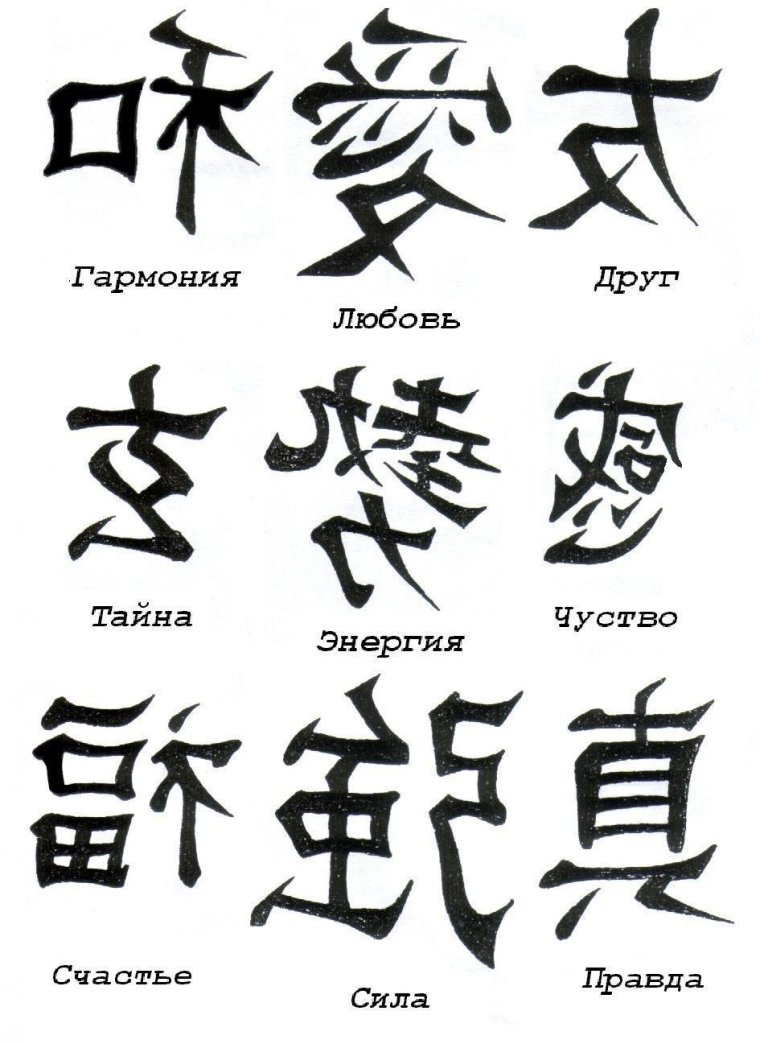 和 愛 友
Гармония Любовь Друг
玄 勢 感
Тайна Энергия Чуство
福 強 真
Счастье Сила Правда